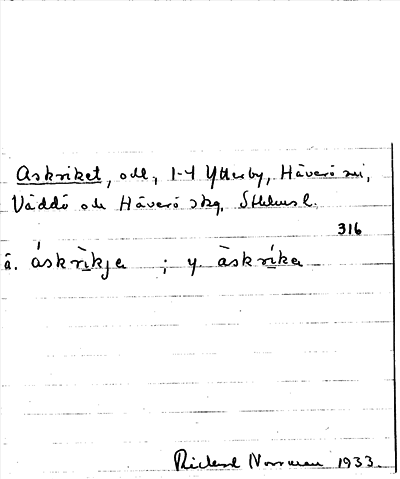 Askriket, odl, 1-4 Ytterby, Häverö sn,
Väddö och Häverö skg, Sthlms l.
316
ä. áskrìkja ; y. àskríka
Rickard Norrman 1933.